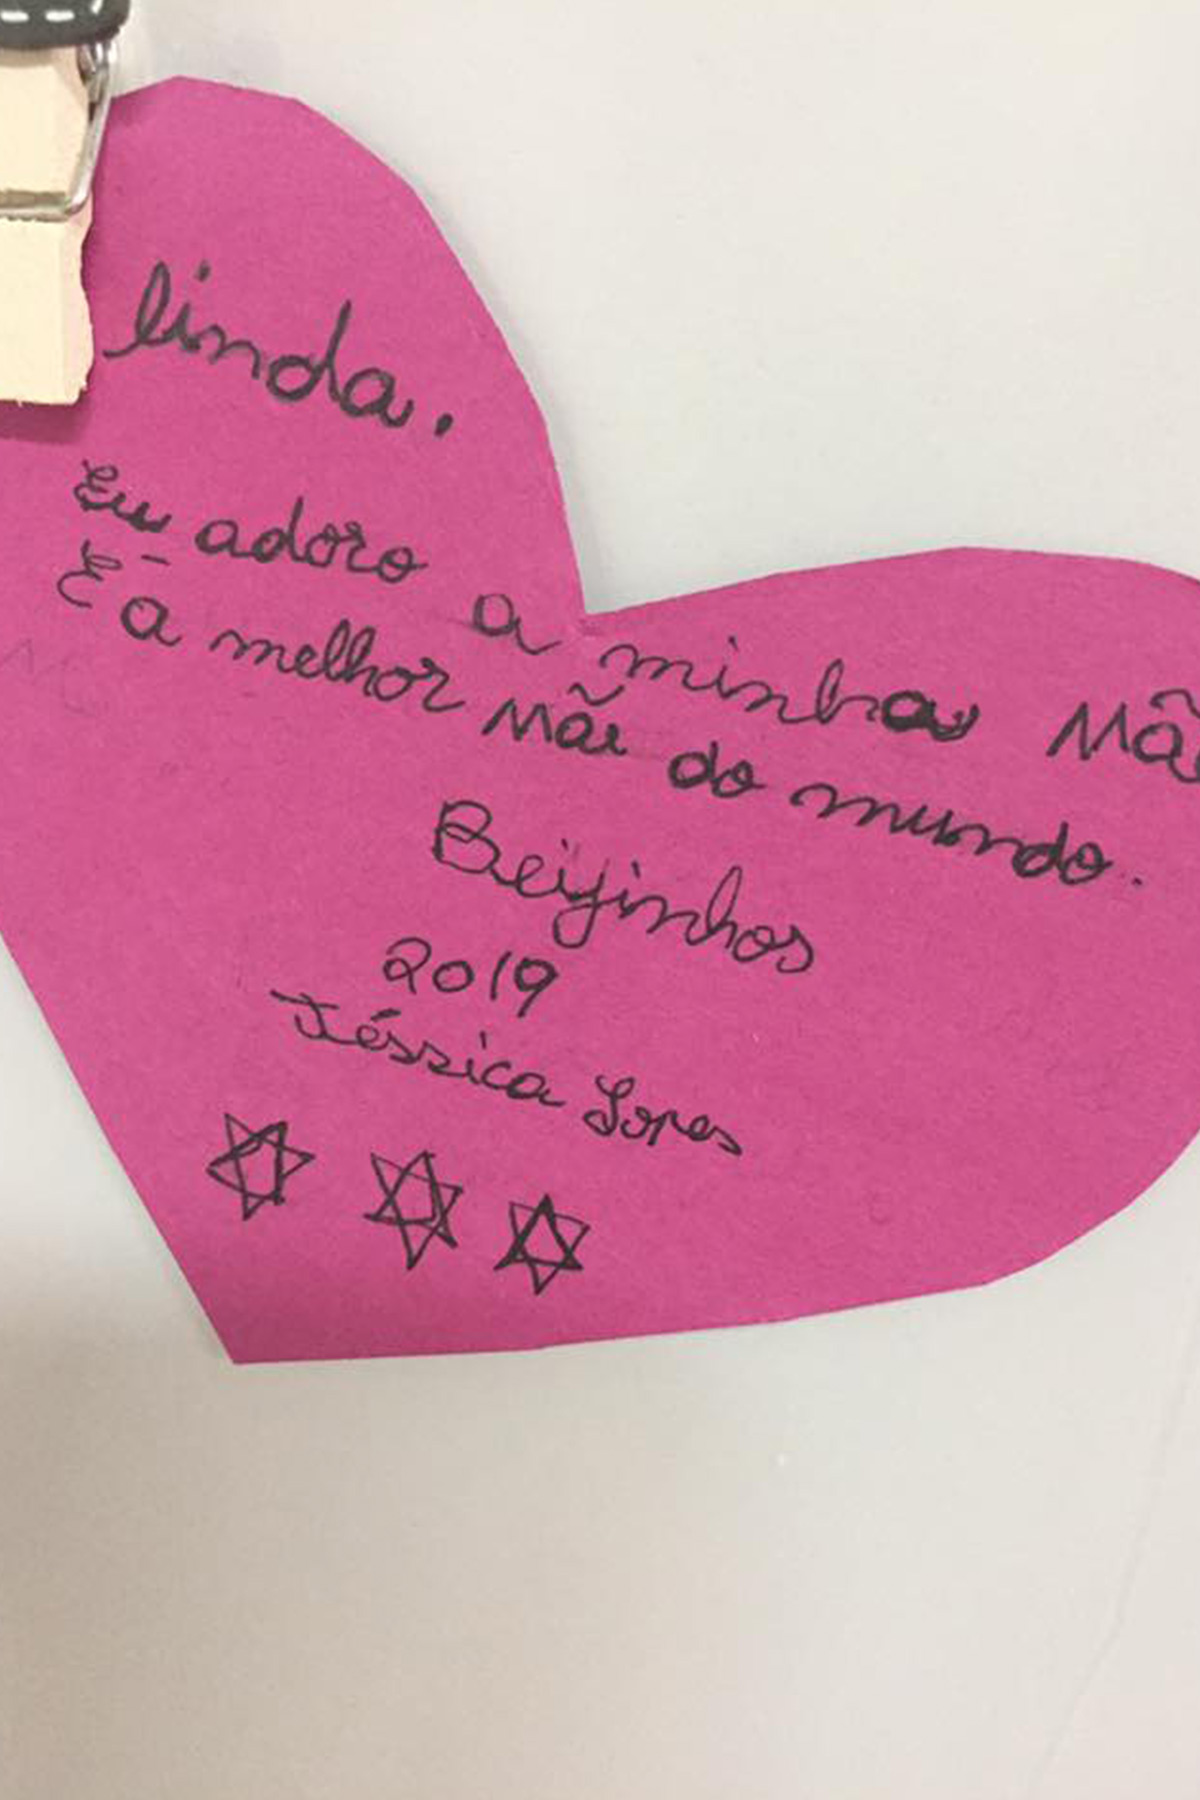 linda.
Eu adoro a minha Mãe
É a melhor Mãe do mundo.
Beijinhos
2019
Jéssica Lopes